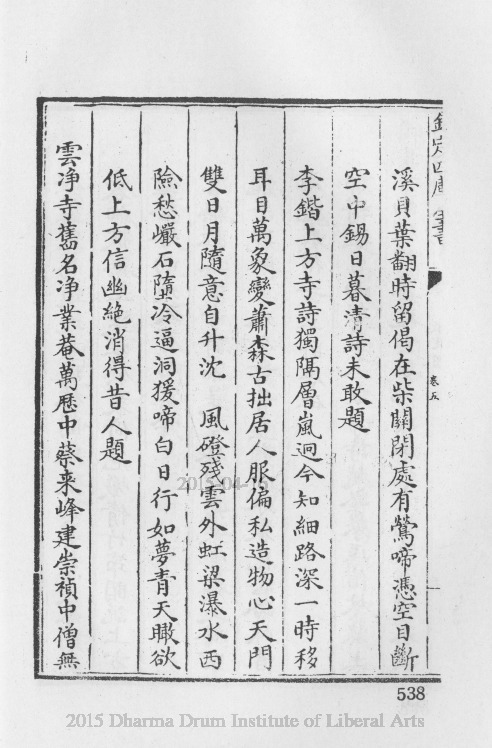 欽定四庫全書
卷五
溪貝葉翻時留偈在柴關閉處有鶯啼憑空目斷
空中錫日暮清詩未敢題
李鍇上方寺詩獨隔層嵐迥今知細路深一時移
耳目萬象變蕭森古拙居人服偏私造物心天門
雙日月隨意自升沈　風磴殘雲外虹梁瀑水西
險愁巖石墮冷逼洞猨啼白日行如夢青天瞰欲
低上方信幽絶消得昔人題
雲净寺舊名净業菴萬歴中蔡来峰建崇禎中僧無
538
2015-04-
2015 Dharma Drum Institute of Liberal Arts